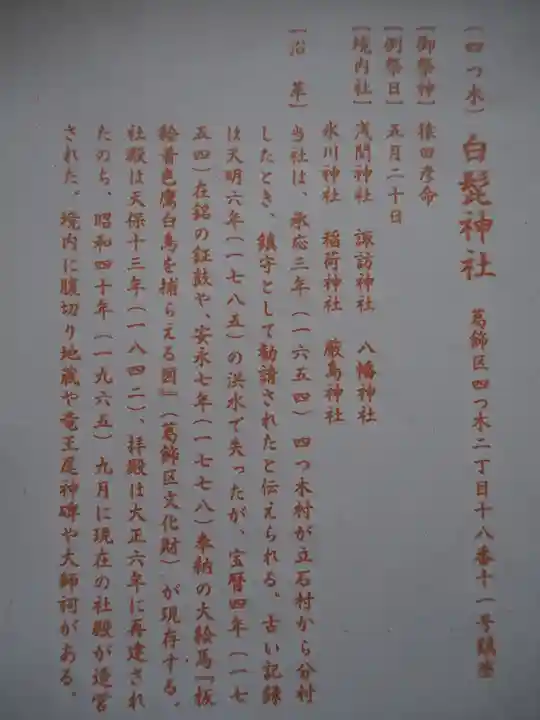 (四つ木)白髭神社　葛飾区四つ木二丁目十八番十一号鎮座
[御祭神]猿田彦命
[例祭日]五月二十日
[境内社]浅間神社　諏訪神社　八幡神社
氷川神社　稲荷神社　厳島神社
[沿　革]当社は、承応三年(一六五四)四つ木村が立石村から分村
したとき、鎮守として勧請されたと伝えられる。古い記録
は天明六年(一七八五)の洪水で失ったが、宝暦四年(一七
五四)在銘の鉦鼓や、安永七年(一七七八)奉納の大絵馬『板
絵着色鷹白鳥を捕らえる図』(葛飾区文化財)が現存する。
社殿は天保十三年(一八四二)、拝殿は大正六年に再建され
たのち、昭和四十年(一九六五)九月に現在の社殿が造営
された。境内に腹切り地蔵や竜王尾神碑や大師祠がある。